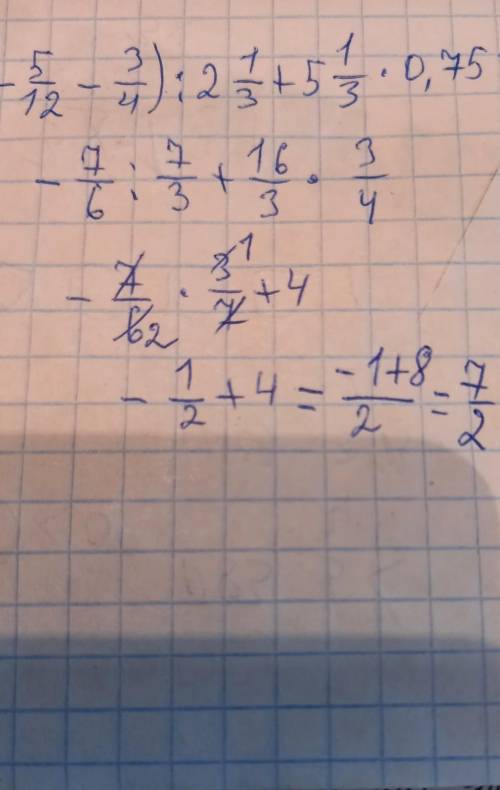 - 5/12 - 3/4) : 2 1/3 + 5 1/3 · 0,75
- 7/6 : 7/3 + 16/3 · 3/4
- 7/6 2 · 3 1/7 + 4
- 1/2 + 4 = -1+8/2 = 7/2